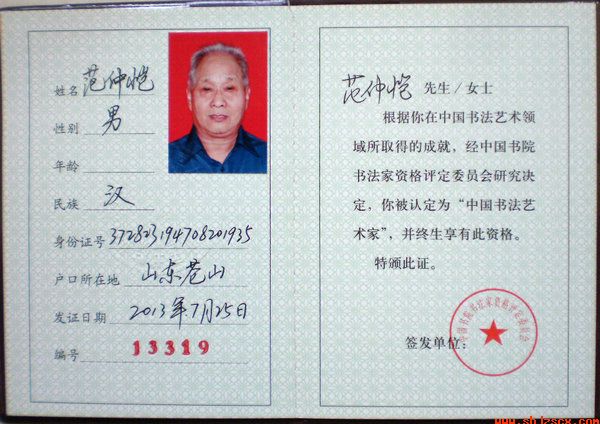 姓名 范仲恺
性别 男
年龄
民族 汉
身份证号 372823194708201935
户口所在地 山东苍山
发证日期 2013年7月25日
编号 13319
范仲恺 先生/女士
根据你在中国书法艺术领
域所取得的成就，经中国书院
书法家资格评定委员会研究决
定，你被认定为“中国书法艺
术家”，并终生享有此资格。
特颁此证。
签发单位：
中国书院书法家资格评定委员会
www.shjzscx.com